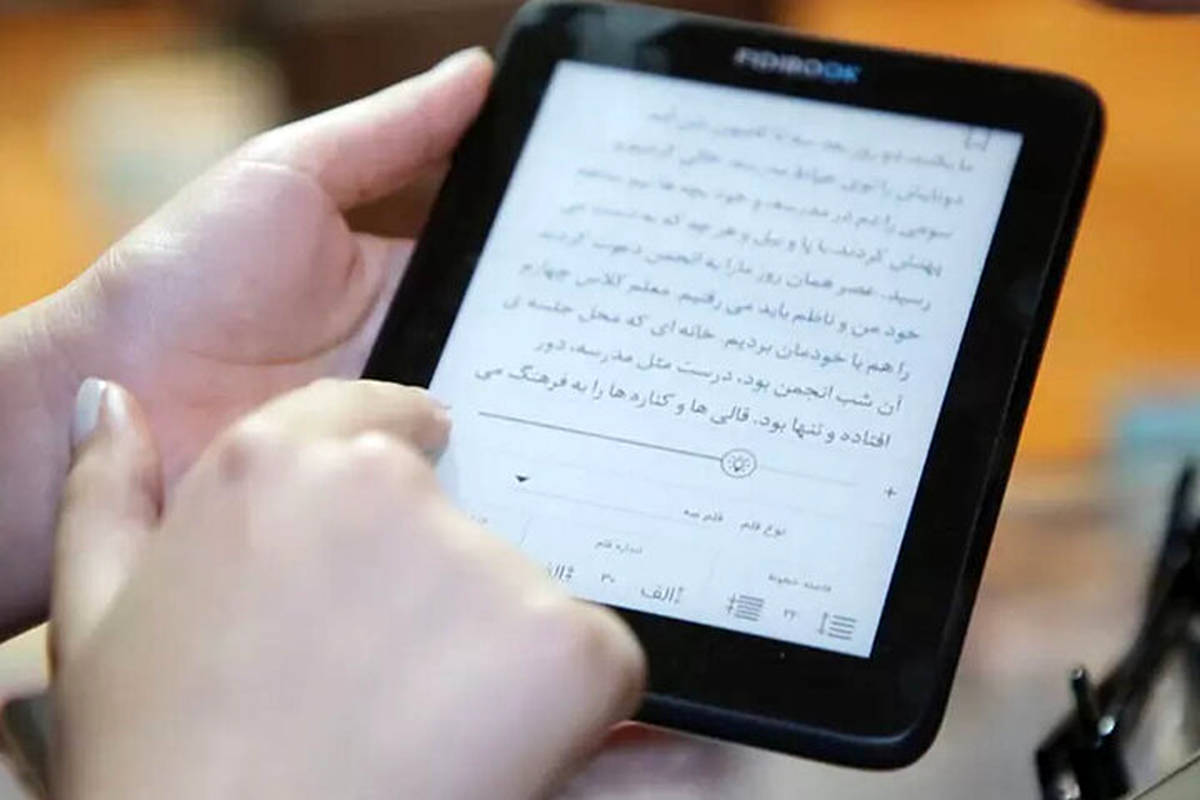 FIDIBOOK
ما بخشید. دو روز بعد سه تا کامیون شن آمد
دوتایش را توی حیاط مدرسه خالی کردیم و
سومی را دم در مدرسه، و خود بچه ها نیم ساعته
پهنش کردند. با پا و بیل و هر چه که به دست می
رسید. عصر همان روز ما را به انجمن دعوت کردند.
خود من و ناظم باید می رفتیم. معلم کلاس چهارم
را هم با خودمان بردیم. خانه ای که محل جلسه ی
آن شب انجمن بود، درست مثل مدرسه، دور
افتاده و تنها بود. قالی ها و کناره ها را به فرهنگ می
+
نوع قلم قلم سه
فاصله خطوط
اندازه قلم
۲۲
الف
۳۰